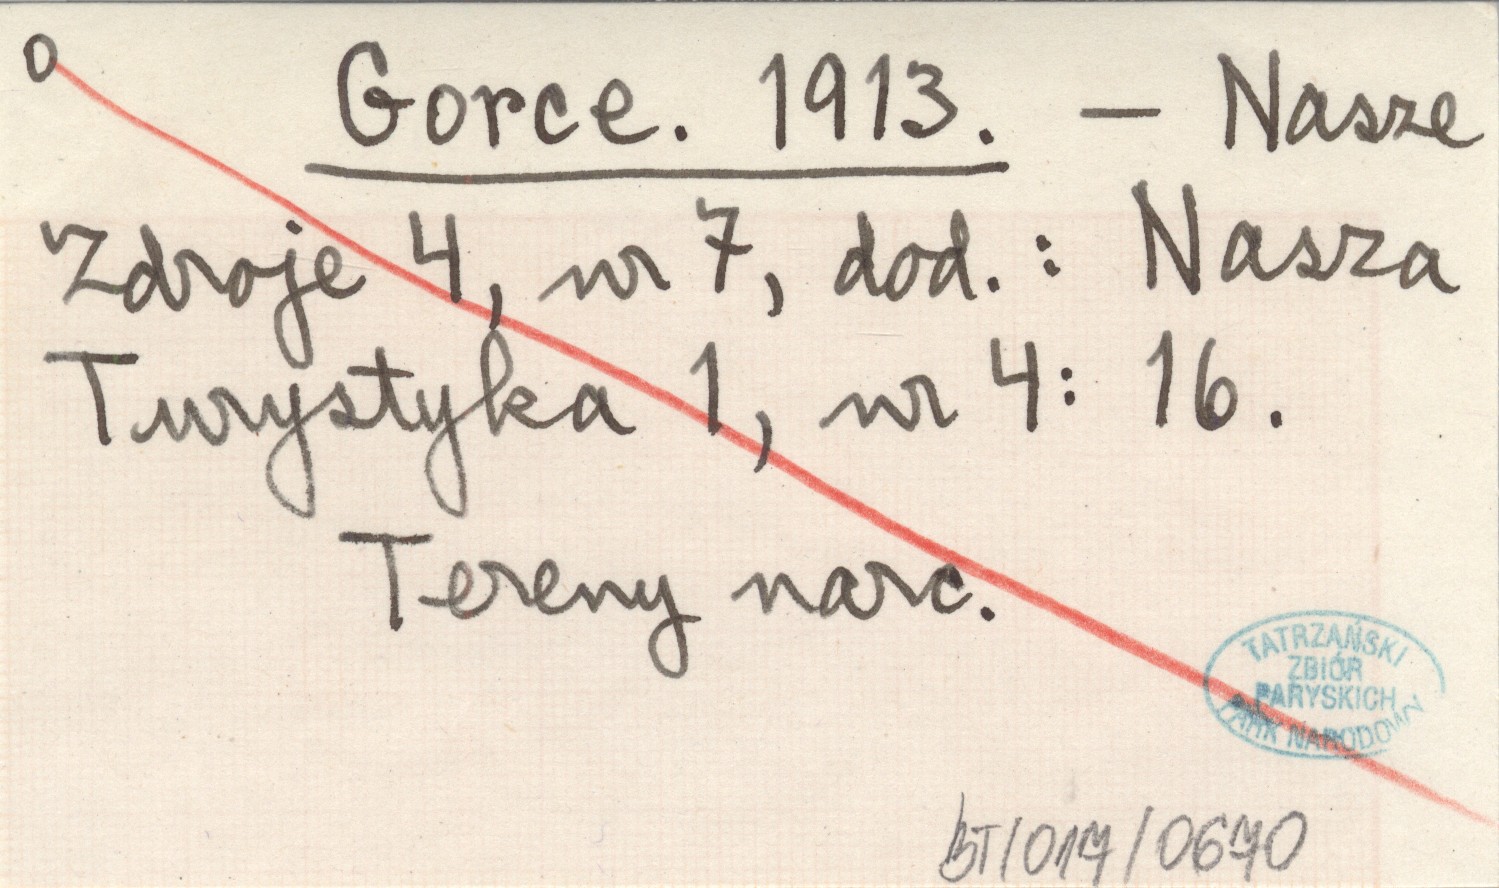 0 Gorce. 1913. — Nasze
Zdroje 4, nr 7, dod.: Nasza
Turystyka 1, nr 4: 16.
Tereny narc.
TATRZAŃSKI
ZBIÓR
PARYSKICH
PARK NARODOWY
BT/017/0670